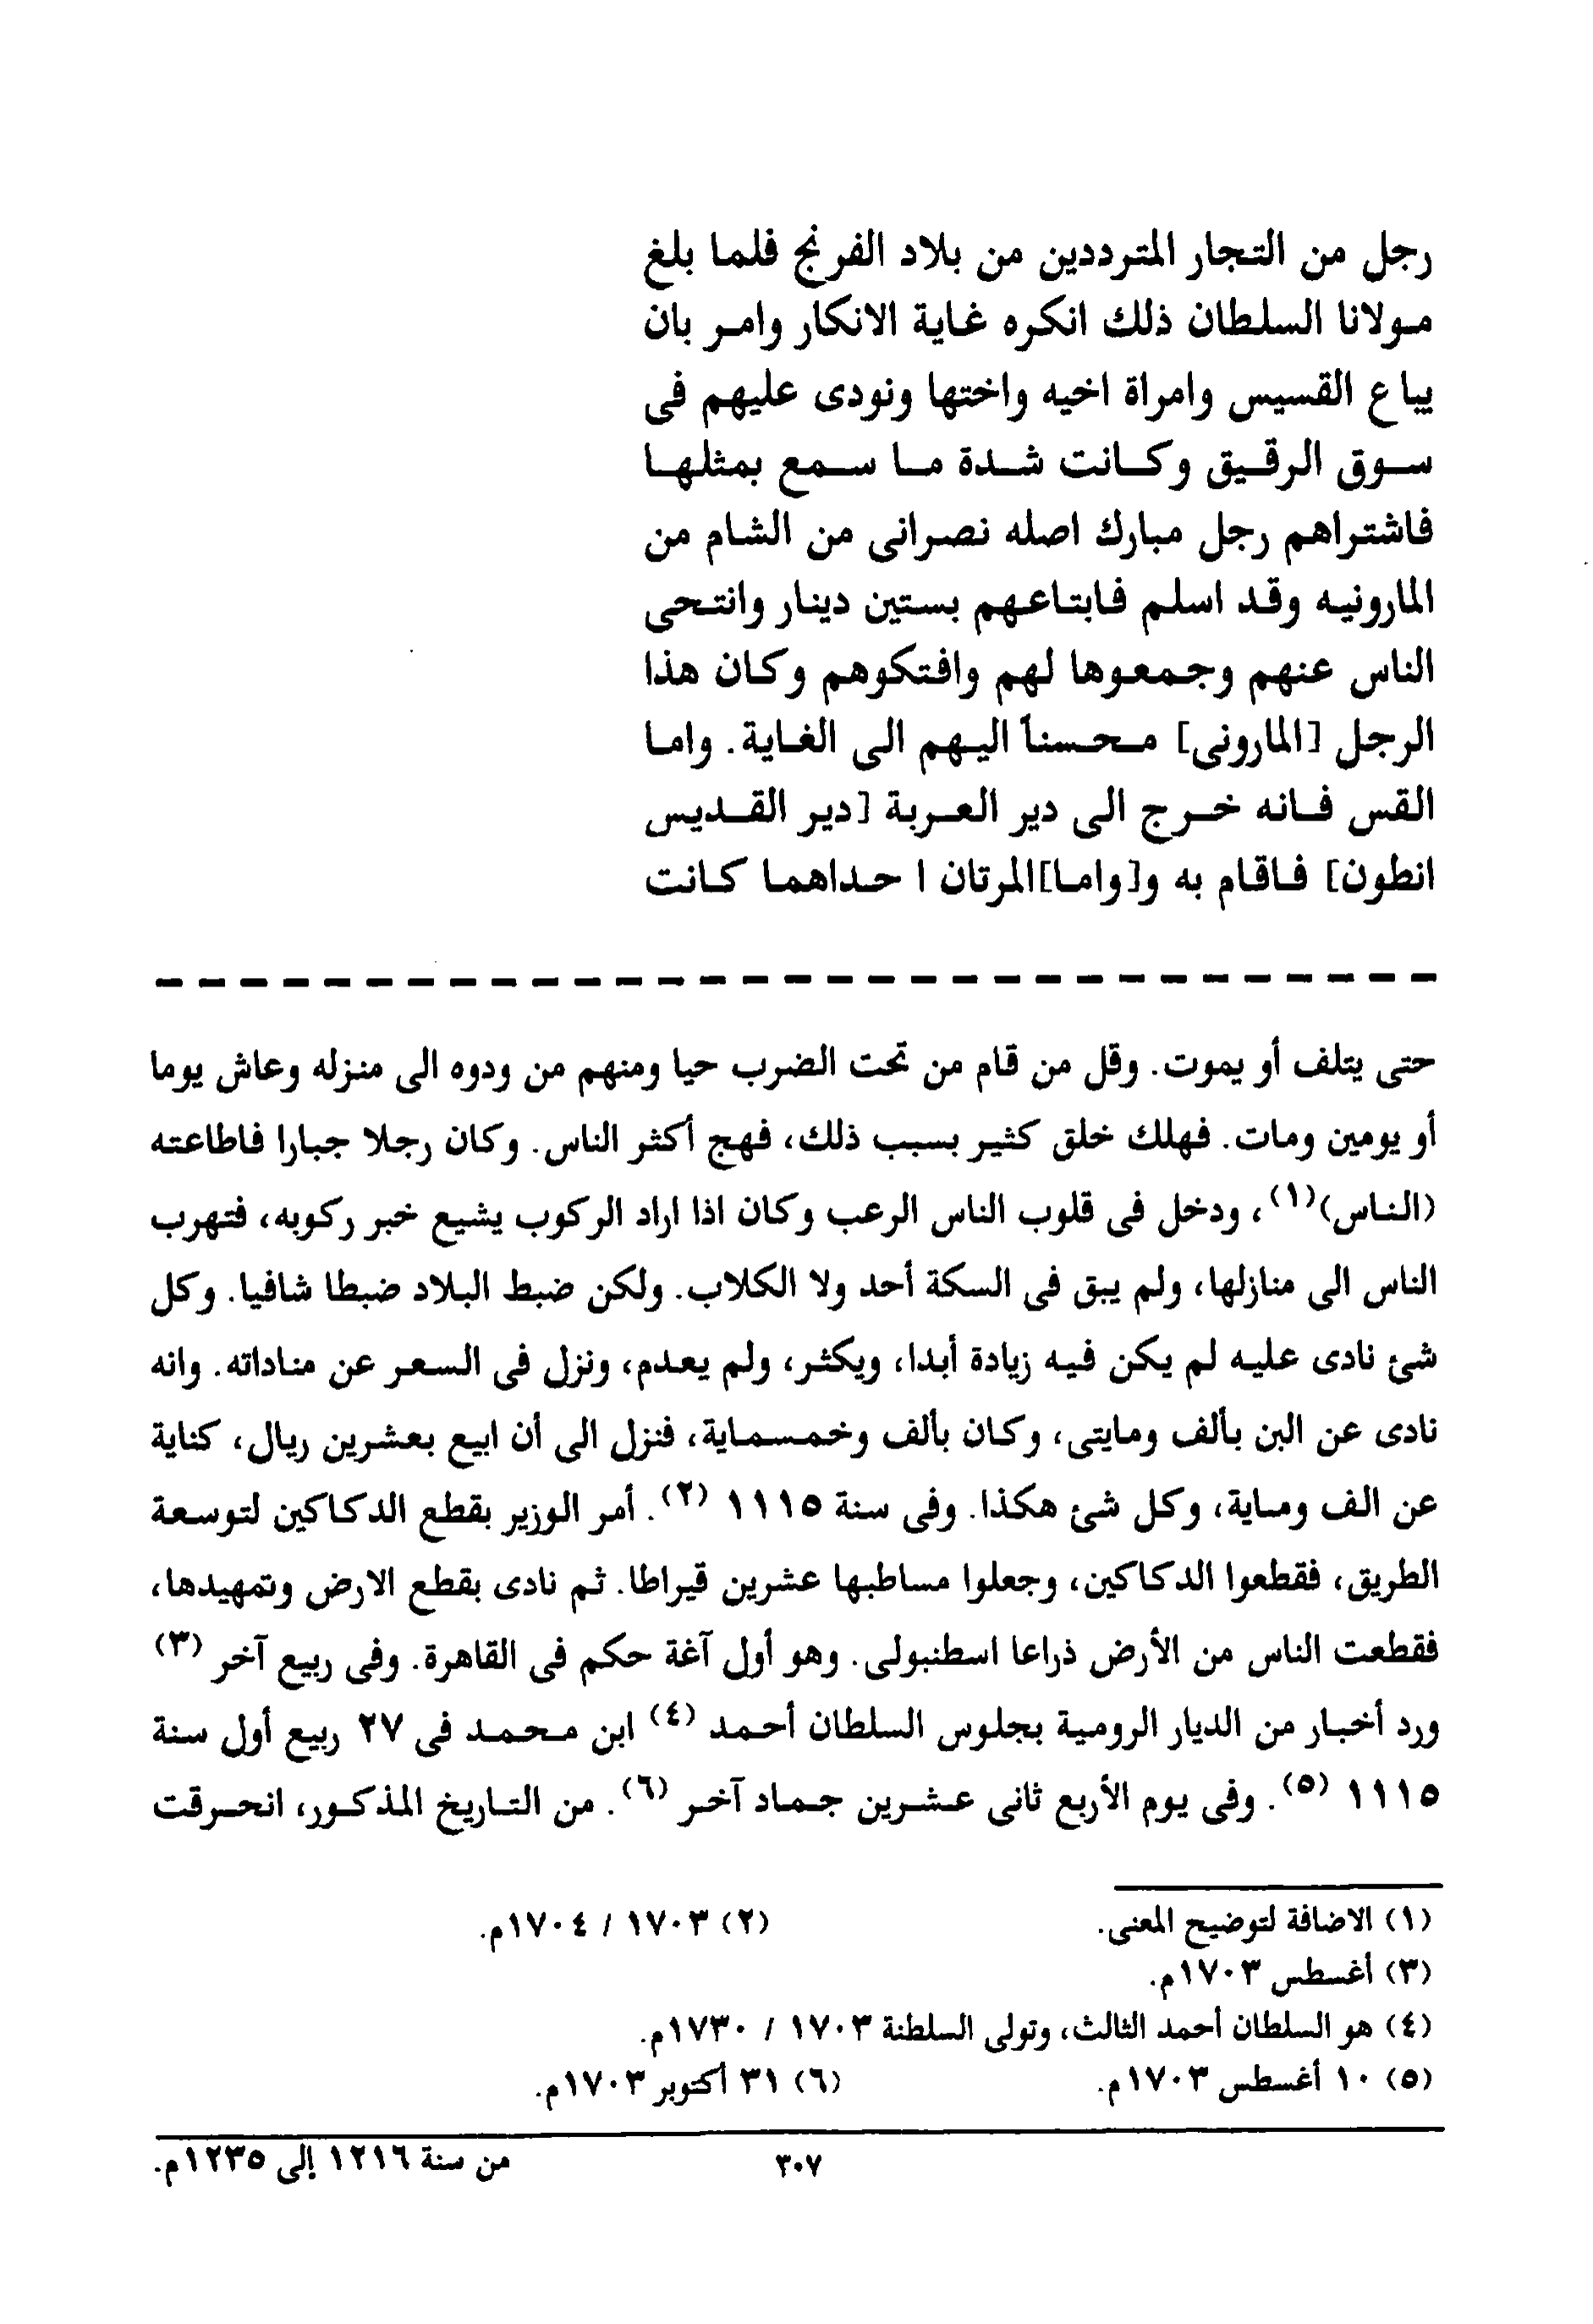 رجل من التجار المترددين من بلاد الفرنج فلما بلغ
مولانا السلطان ذلك انكره غاية الانكار وامر بان
يباع القسيس وامراة اخيه واختها ونودى عليهم فى
سوق الرقيق وكانت شدة ما سمع بمثلها
فاشتراهم رجل مبارك اصله نصرانى من الشام من
المارونيه وقد اسلم فابتاعهم بستين دينار وانتحى
الناس عنهم وجمعوها لهم وافتكوهم وكان هذا
الرجل [المارونى] محسناً اليهم الى الغاية. واما
القس فانه خرج الى دير العربة [دير القديس
انطون] فاقام به و[واما]المرتان ا حداهما كانت
حتى يتلف أو يموت. وقل من قام من تحت الضرب حيا ومنهم من ودوه الى منزله وعاش يوما
أو يومين ومات. فهلك خلق كثير بسبب ذلك، فهج أكثر الناس. وكان رجلا جبارا فاطاعته
(الناس)(١)، ودخل فى قلوب الناس الرعب وكان اذا اراد الركوب يشيع خبر ركوبه، فتهرب
الناس الى منازلها، ولم يبق فى السكة أحد ولا الكلاب. ولكن ضبط البلاد ضبطا شافيا. وكل
شئ نادى عليه لم يكن فيه زيادة أبدا، ويكثر، ولم يعدم، ونزل فى السعر عن مناداته. وانه
نادى عن البن بألف ومايتى، وكان بألف وخمسماية، فنزل الى أن ابيع بعشرين ريال، كناية
عن الف وماية، وكل شئ هكذا. وفى سنة ١١١٥ (٢). أمر الوزير بقطع الدكاكين لتوسعة
الطريق، فقطعوا الدكاكين، وجعلوا مساطبها عشرين قيراطا. ثم نادى بقطع الارض وتمهيدها،
فقطعت الناس من الأرض ذراعا اسطنبولى. وهو أول آغة حكم فى القاهرة. وفى ربيع آخر (٣)
ورد أخبار من الديار الرومية بجلوس السلطان أحمد (٤) ابن محمد فى ٢٧ ربيع أول سنة
١١١٥ (٥). وفى يوم الأربع ثانى عشرين جماد آخر (٦). من التاريخ المذكور، انحرقت
(١) الاضافة لتوضيح المعنى. (٢) ١٧٠٣ / ١٧٠٤م.
(٣) أغسطس ١٧٠٣م.
(٤) هو السلطان أحمد الثالث، وتولى السلطنة ١٧٠٣ / ١٧٣٠م.
(٥) ١٠ أغسطس ١٧٠٣م. (٦) ٣١ أكتوبر ١٧٠٣م.
٣٠٧ من سنة ١٢١٦ إلى ١٢٣٥م.